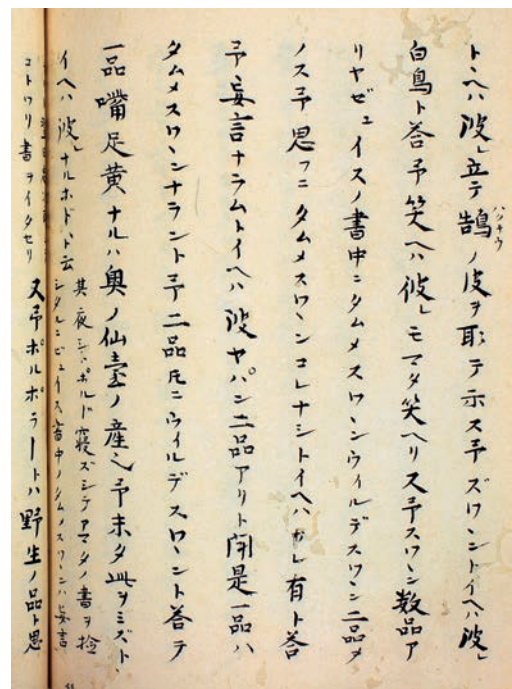 トヘハ彼レ立テ鵠ノ皮ヲ取テ示ス予ズワーントイヘハ彼レ
ハクテウ
白鳥ト荅予笑ヘハ彼レモマタ笑ヘリス予スワーン数品ア
リヤゼュイスノ書中ニタムメスワーンウイルデスワーン二品メ
ノス予思フニタムメスワーンコレナシトイヘハ彼レ有ト荅
予妄言ナラムトイヘハ彼ヤパン二品アリト聞是一品ハ
タムメスワーンナラント予二品トモニウイルデスワーント荅テ
一品嘴足黄ナルハ奥ノ仙臺ノ産也予未タ此ヲミズト
イヘハ彼レナルホドト云
其夜シーボルド寝ズシテアマタノ書ヲ捡
シタルニゼュイス書中ノタムメスワーンハ妄言
コトワリ書ヲイタセリ
又予ポルポラートハ野生ノ品ト思